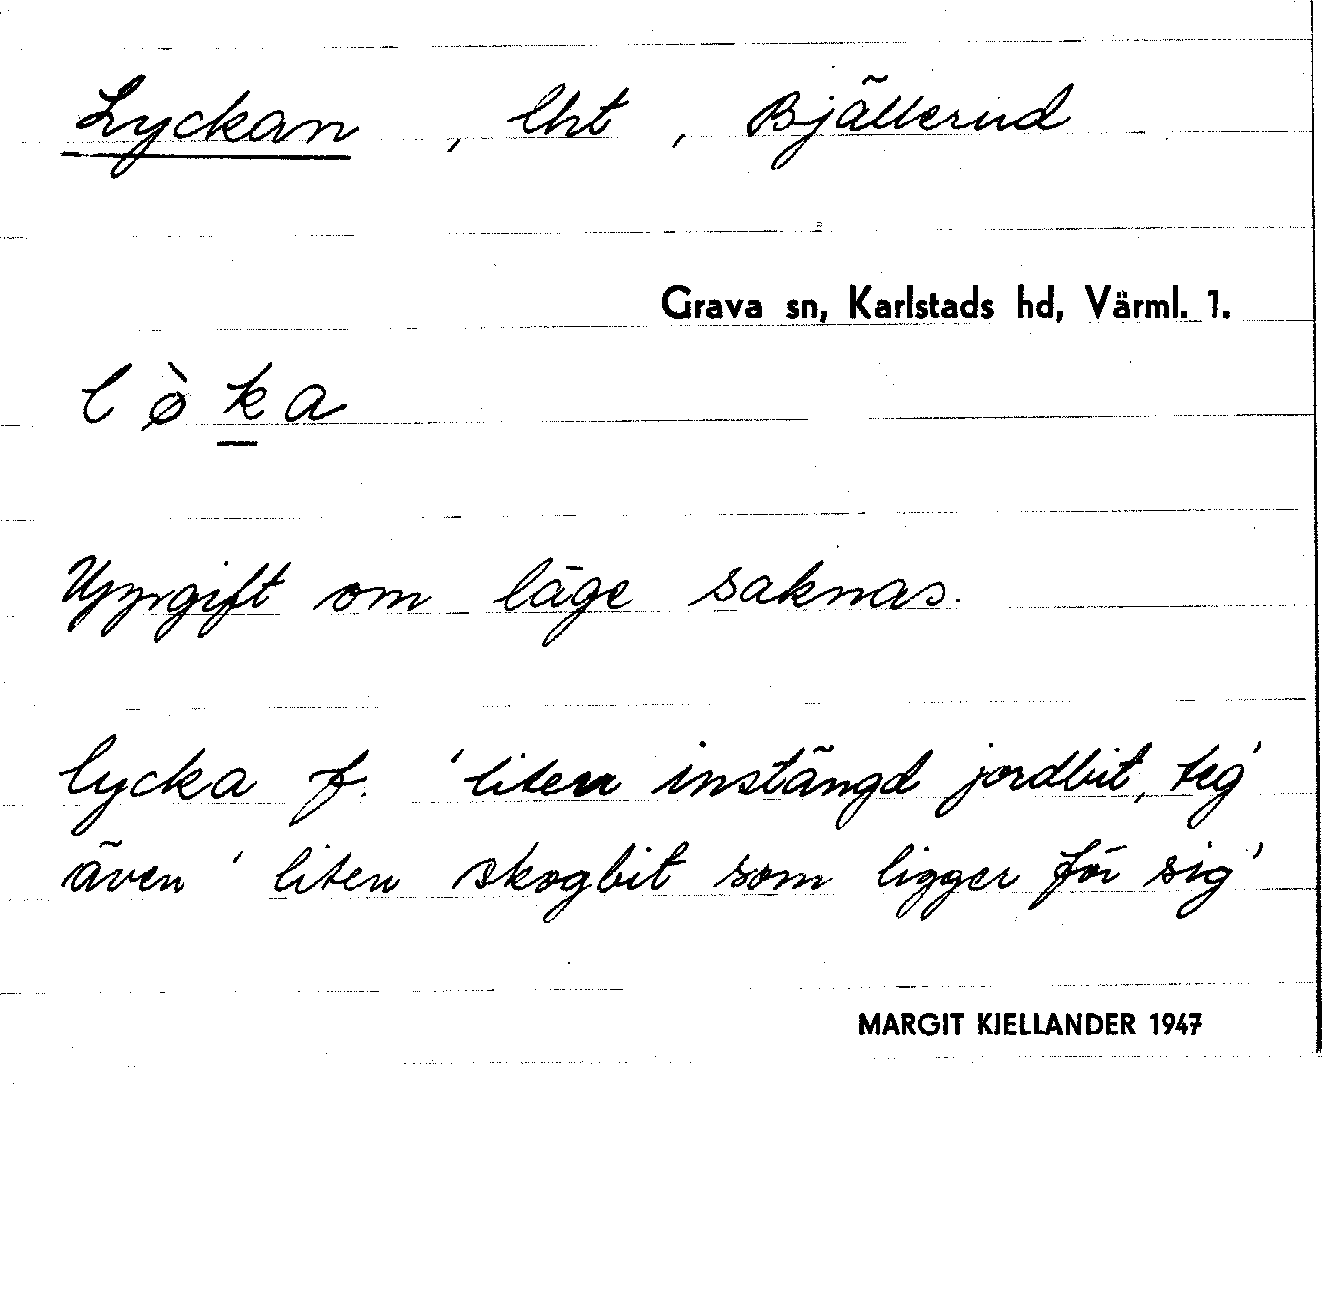 Lyckan, lht, Bjällerud
Grava sn, Karlstads hd, Värml. 1.
lø̀ka
Uppgift om läge saknas.
lycka f. 'liten instängd jordbit, teg'
även 'liten skogbit som ligger för sig'
MARGIT KJELLANDER 1947